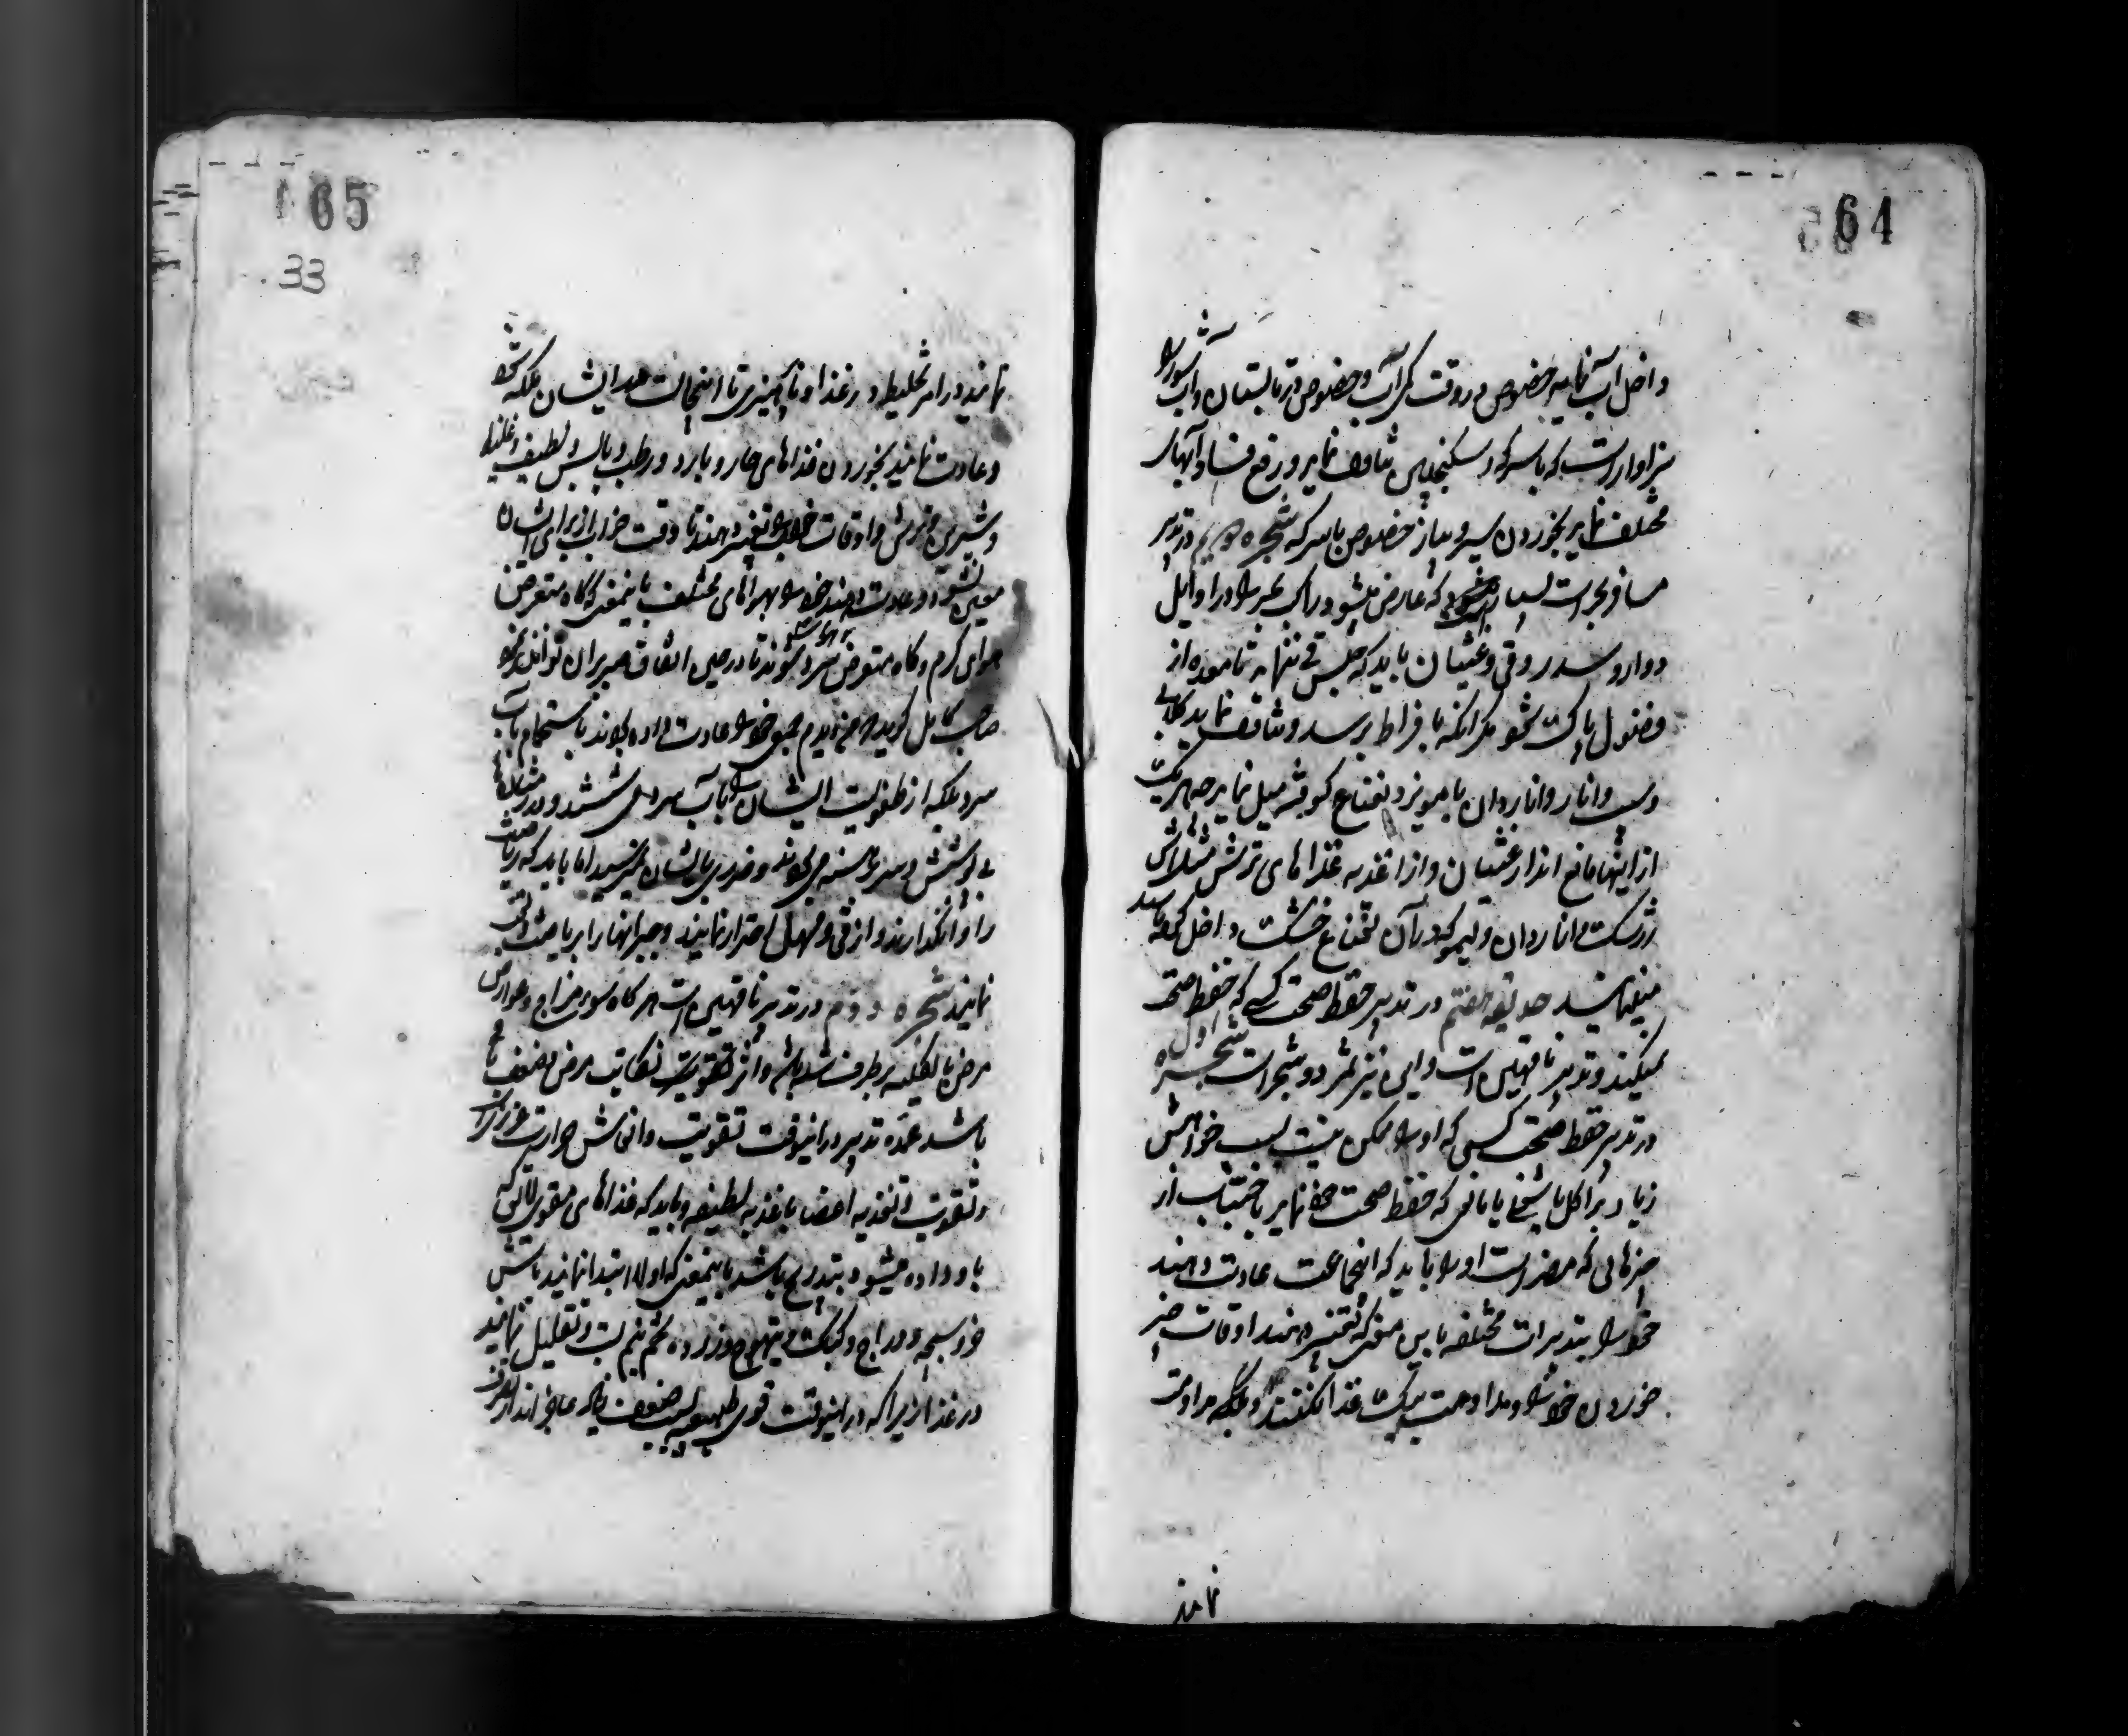 64
داخل آب نماید خصوص در وقت کمی آب و خصوص در تابستان و آب شور را
سزاوار است که با سرکه و سکنجبین تناول نماید و رفع فساد آبهای
مختلف نماید بخوردن سیر و پیاز خصوص با سرکه شجره سیم در تدبیر
مسافر بحر است بسیار که عارض میشود راکب بحر را در اوایل
دوار و سدر و قی و غثیان باید که حبس قی ننماید تا معده از
فضول پاک شود مگر آنکه بافراط برسد و تناول نماید
و به و انار و اناردان با مویز و نعناع کوفته میل نماید چه هر یک
از اینها مانع اند از غثیان و از اغذیه غذاهای ترش مثل آش
زرشک و اناردان و لیمو که در آن نعناع خشک داخل کرده باشند
حدیقه هفتم در تدبیر حفظ صحت کسی که حفظ صحت
میکند و تدبیر ناقهین است و این نیز مثمر دو شجرات شجره اول
در تدبیر حفظ صحت کسی که او را ممکن نیست بسبب خواهش
زیاد بر اکل یا بسبب که حفظ صحت خود نماید باجتناب از
چیزهائی که مضر است او را باید که اینجماعت عادت دهند
خود را بتدبیرات مختلفه باین معنی که تغییر دهند اوقات چیز
خوردن خود را و مداومت بیک غذا نکنند و بلکه مداومت
نمایند
65
33
نمایند در امر تخلیط در غذا و تا اینحالت ایشان ملکه شود
و عادت نمایند بخوردن غذاهای حار و بارد و رطب و یابس و لطیف و غلیظ
و شیرین و ترش و اوقات خواب را تغییر دهند تا وقت خواب از برای ایشان
معین نشود و عادت دهند خود را بهواهای مختلف باینمعنی که گاه متعرض
هوای گرم و گاه متعرض هوای سرد شوند تا در حین اتفاق صبر بر آن توانند کرد
صاحب کامل گوید که من دیدم جمعی خود را عادت داده بودند باستحمام بآب
سرد بلکه از طفولیت ایشان را بآب سرد می شستند و در زمستانها
بی پوشش و سر برهنه می بودند و ضرری بایشان نمیرسید اما باید که ریاضت
را وانگذارند و از قی و مسهل احتراز نمایند و جبر آنها را بریاضت
نمایند شجره دویم در تدبیر ناقهین است هر گاه سوء مزاج و عوارض
مرض بالکلیه برطرف شده باشد و اثر نکایت مرض و ضعف باقی
باشد عمده تدبیر در اینوقت تقویت و انعاش حرارت غریزی است
و تقویت و تغذیه اعضا باغذیه لطیفه و باید که غذاهای مقوی لایق که
باو داده میشود بتدریج باشد باینمعنی که اولا ابتدا نمایند بآش
خروسبچه و دراج و کبک و تیهوج و زرده تخم نیم بست و تقلیل نمایند
در غذا زیرا که در اینوقت قوی طبیعیه بسبب ضعف عاجزاند از تصرف